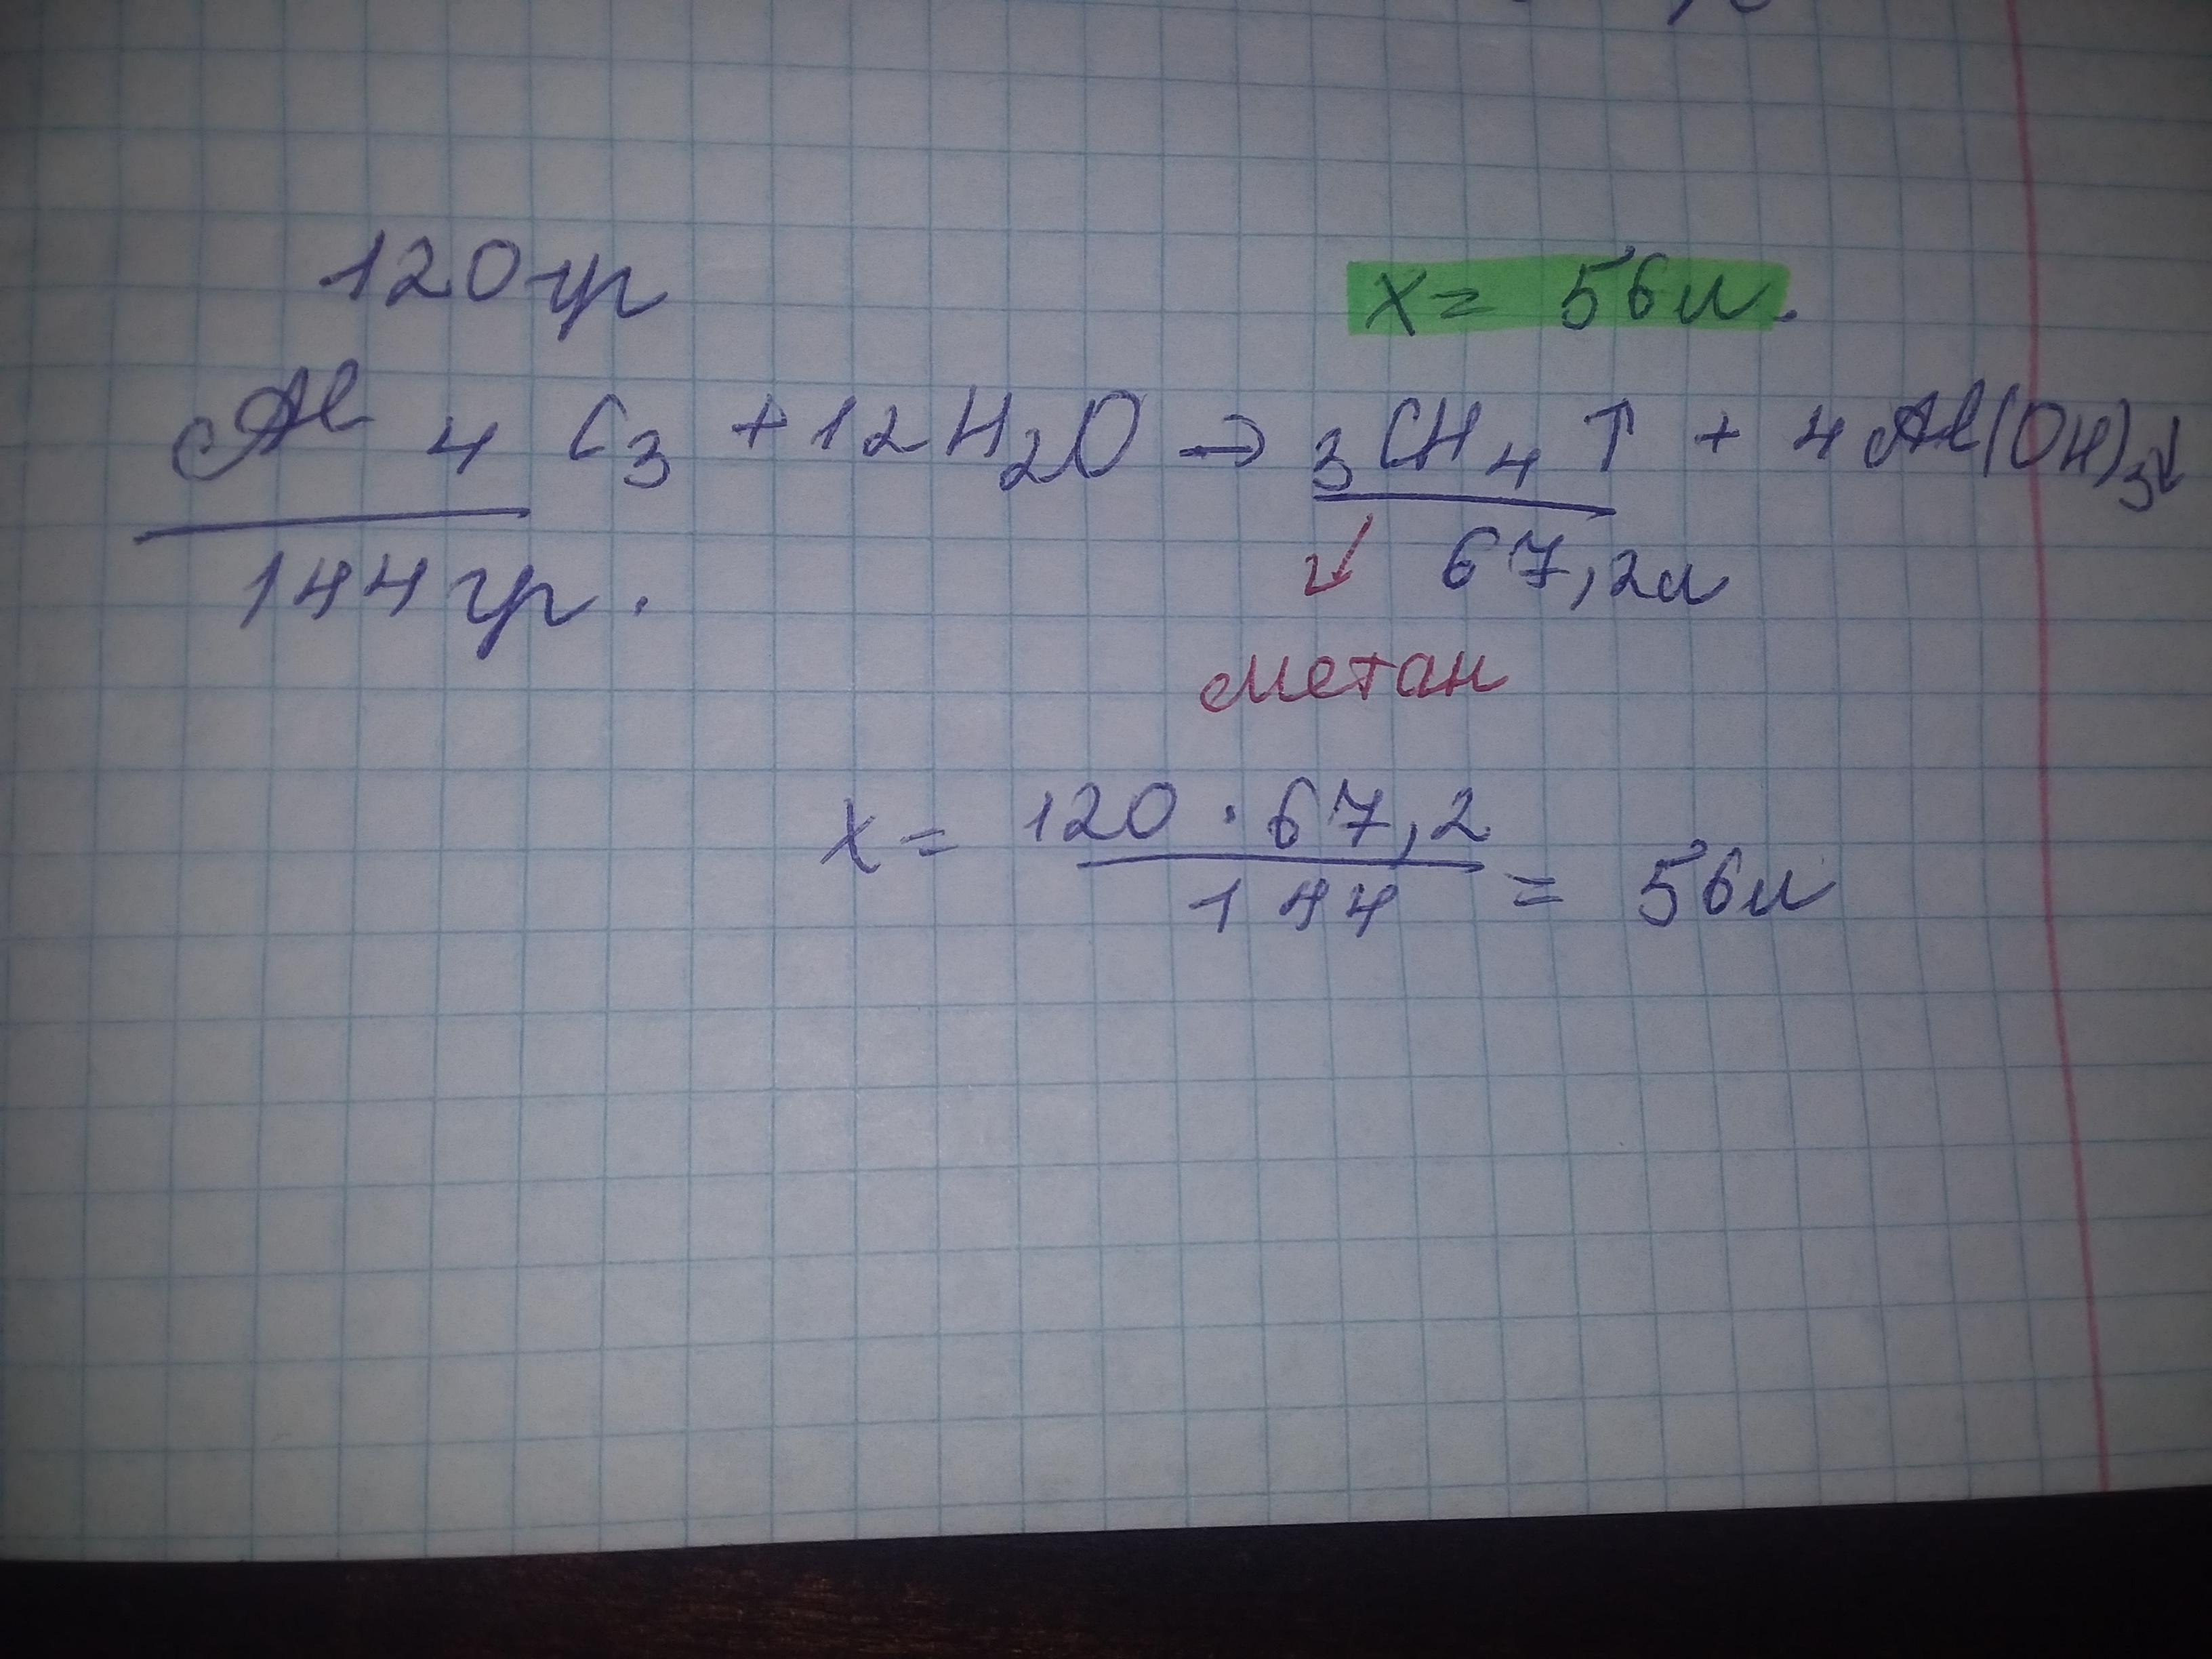 120гр x = 56л.
Al4C3 + 12H2O → 3CH4↑ + 4Al(OH)3↓
144гр. ↓ 67,2л
метан
x = 120 · 67,2 / 144 = 56л